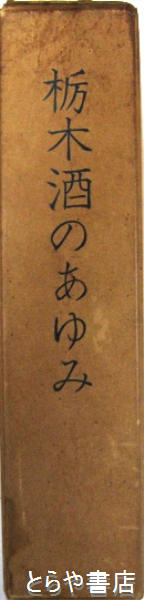 栃木酒のあゆみ
とらや書店